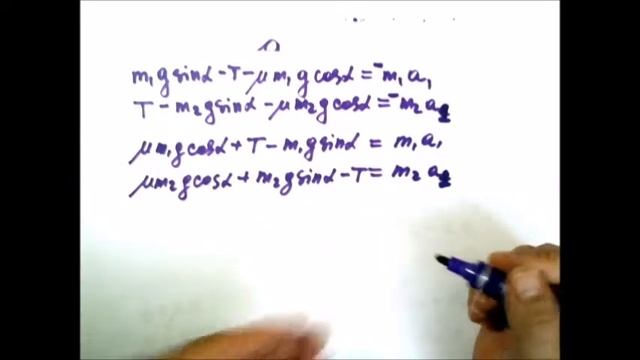 m₁g sinα - T - μm₁g cosα = -m₁a₁
T - m₂g sinα - μm₂g cosα = -m₂a₂
μm₁g cosα + T - m₁g sinα = m₁a₁
μm₂g cosα + m₂g sinα - T = m₂a₂